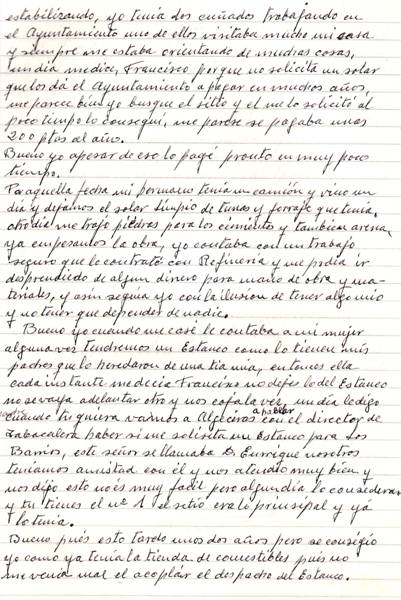 estabilizando, yo tenia dos cuñados trabajando en
el Ayuntamiento uno de ellos visitaba mucho mi casa
y siempre me estaba orientando de muchas cosas,
un dia me dice, Francisco porque no solicita un solar
que los dá el Ayuntamiento a pagar en muchos años,
me parece bien yo busque el sitio y el me lo solicitó al
poco tiempo lo conseguí, me parece se pagaba unas
200 ptas al año.
Bueno yo apesar de eso lo pagé pronto en muy poco
tiempo.
Por aquella fecha mi hermano tenia un camión y vino un
dia y dejamos el solar limpio de tunas y forraje que tenia,
otro dia me trajo piedras para los cimientos y tambien arena,
ya empesamos la obra, yo contaba con un trabajo
seguro que lo contrató con Refineria y me podia ir
desprendiedo de algun dinero para mano de obra y ma-
teriales, y asin seguia yo con la ilusion de tener algo mio
y no tener que depender de nadie.
Bueno yo cuando me casé le contaba a mi mujer
alguna ves tendremos un Estanco como lo tienen mis
padres que lo heredaron de una tia mia, entonses ella
cada instante me decia Francisco no dejes lo del Estanco
no se vaya adelantar otro y nos coja la vez, un dia le digo
cuando tu quiera vamos a Algeciras a hablar con el director de
Tabacalera haber si me solisita un Estanco para Los
Barrios, este señor se llamaba D. Enrrique nosotros
teniamos amistad con él y nos atendio muy bien y
nos dijo esto no és muy facil pero algun dia lo consederan
y tu tienes el nº 1 el sitió era lo prinsipal y yá
lo tenia.
Bueno pués esto tardo unos dos años pero se consigió
yo como ya tenia la tienda de comestibles pués no
me venia mal el acoplar el despacho del Estanco.